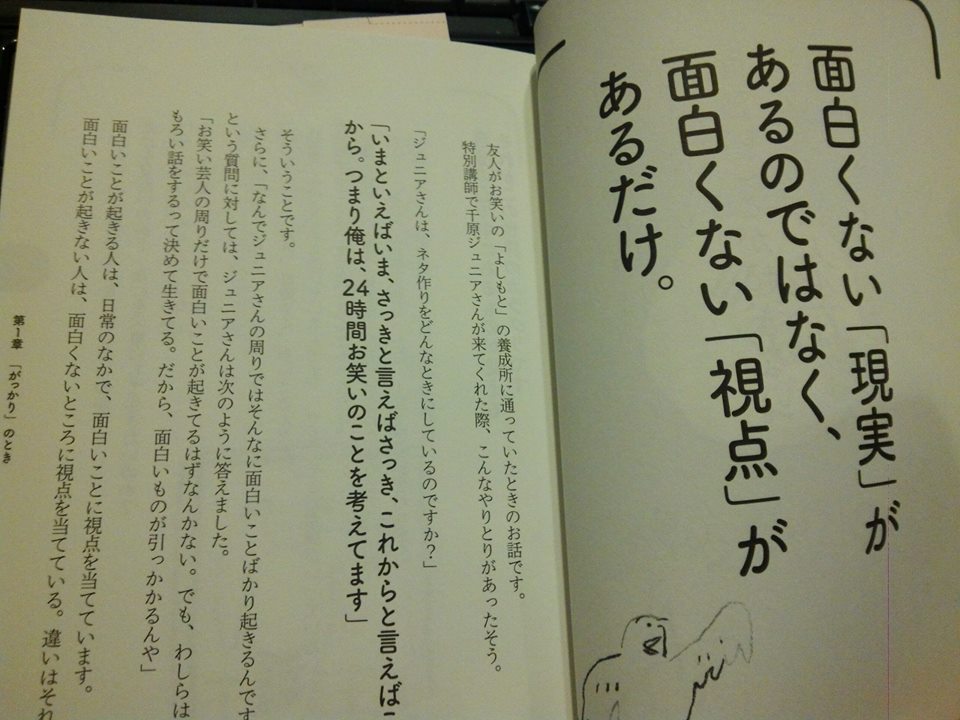 面白くない「現実」が
あるのではなく、
面白くない「視点」が
あるだけ。
友人がお笑いの「よしもと」の養成所に通っていたときのお話です。
特別講師で千原ジュニアさんが来てくれた際、こんなやりとりがあったそう。
「ジュニアさんは、ネタ作りをどんなときにしているのですか？」
「いまといえばいま、さっきと言えばさっき、これからと言えばこ
から。つまり俺は、24時間お笑いのことを考えてます」
そういうことです。
さらに、「なんでジュニアさんの周りではそんなに面白いことばかり起きるんです
という質問に対しては、ジュニアさんは次のように答えました。
「お笑い芸人の周りだけで面白いことが起きてるはずなんかない。でも、わしらは
もろい話をするって決めて生きてる。だから、面白いものが引っかかるんや」
面白いことが起きる人は、日常のなかで、面白いことに視点を当てています。
面白いことが起きない人は、面白くないところに視点を当てている。違いはそれ
第1章 「がっかり」のとき